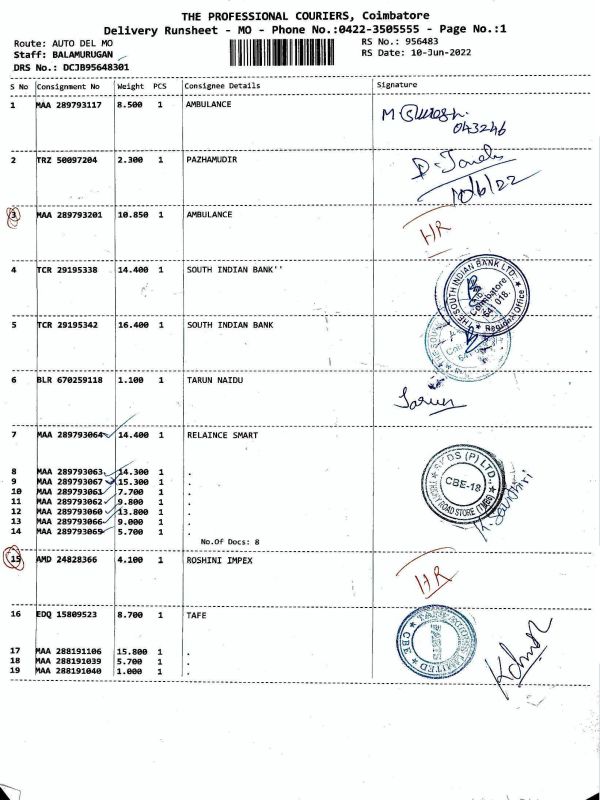 THE PROFESSIONAL COURIERS, Coimbatore
Delivery Runsheet - MO - Phone No.:0422-3505555 - Page No.:1
Route: AUTO DEL MO RS No.: 956483
Staff: BALAMURUGAN RS Date: 10-Jun-2022
DRS No.: DCJB95648301
S No Consignment No Weight PCS Consignee Details Signature
1 MAA 289793117 8.500 1 AMBULANCE
M Suresh.
043246
2 TRZ 50097204 2.300 1 PAZHAMUDIR
10/6/22
3 MAA 289793201 10.850 1 AMBULANCE
HR
4 TCR 29195338 14.400 1 SOUTH INDIAN BANK''
THE SOUTH INDIAN BANK LTD.
Coimbatore
641 018.
Regional Office
5 TCR 29195342 16.400 1 SOUTH INDIAN BANK
6 BLR 670259118 1.100 1 TARUN NAIDU
Tarun
7 MAA 289793064 14.400 1 RELAINCE SMART
8 MAA 289793063 14.300 1 .
9 MAA 289793067 15.300 1 .
10 MAA 289793061 7.700 1 .
11 MAA 289793062 9.800 1 .
12 MAA 289793060 13.800 1 .
13 MAA 289793066 9.000 1 .
14 MAA 289793069 5.700 1 .
No.Of Docs: 8
(P) LTD.
CBE-18
ROAD STORE
15 AMD 24828366 4.100 1 ROSHINI IMPEX
HR
16 EDQ 15809523 8.700 1 TAFE
LIMITED
CBE
17 MAA 288191106 15.800 1 .
18 MAA 288191039 5.700 1 .
19 MAA 288191040 1.000 1 .